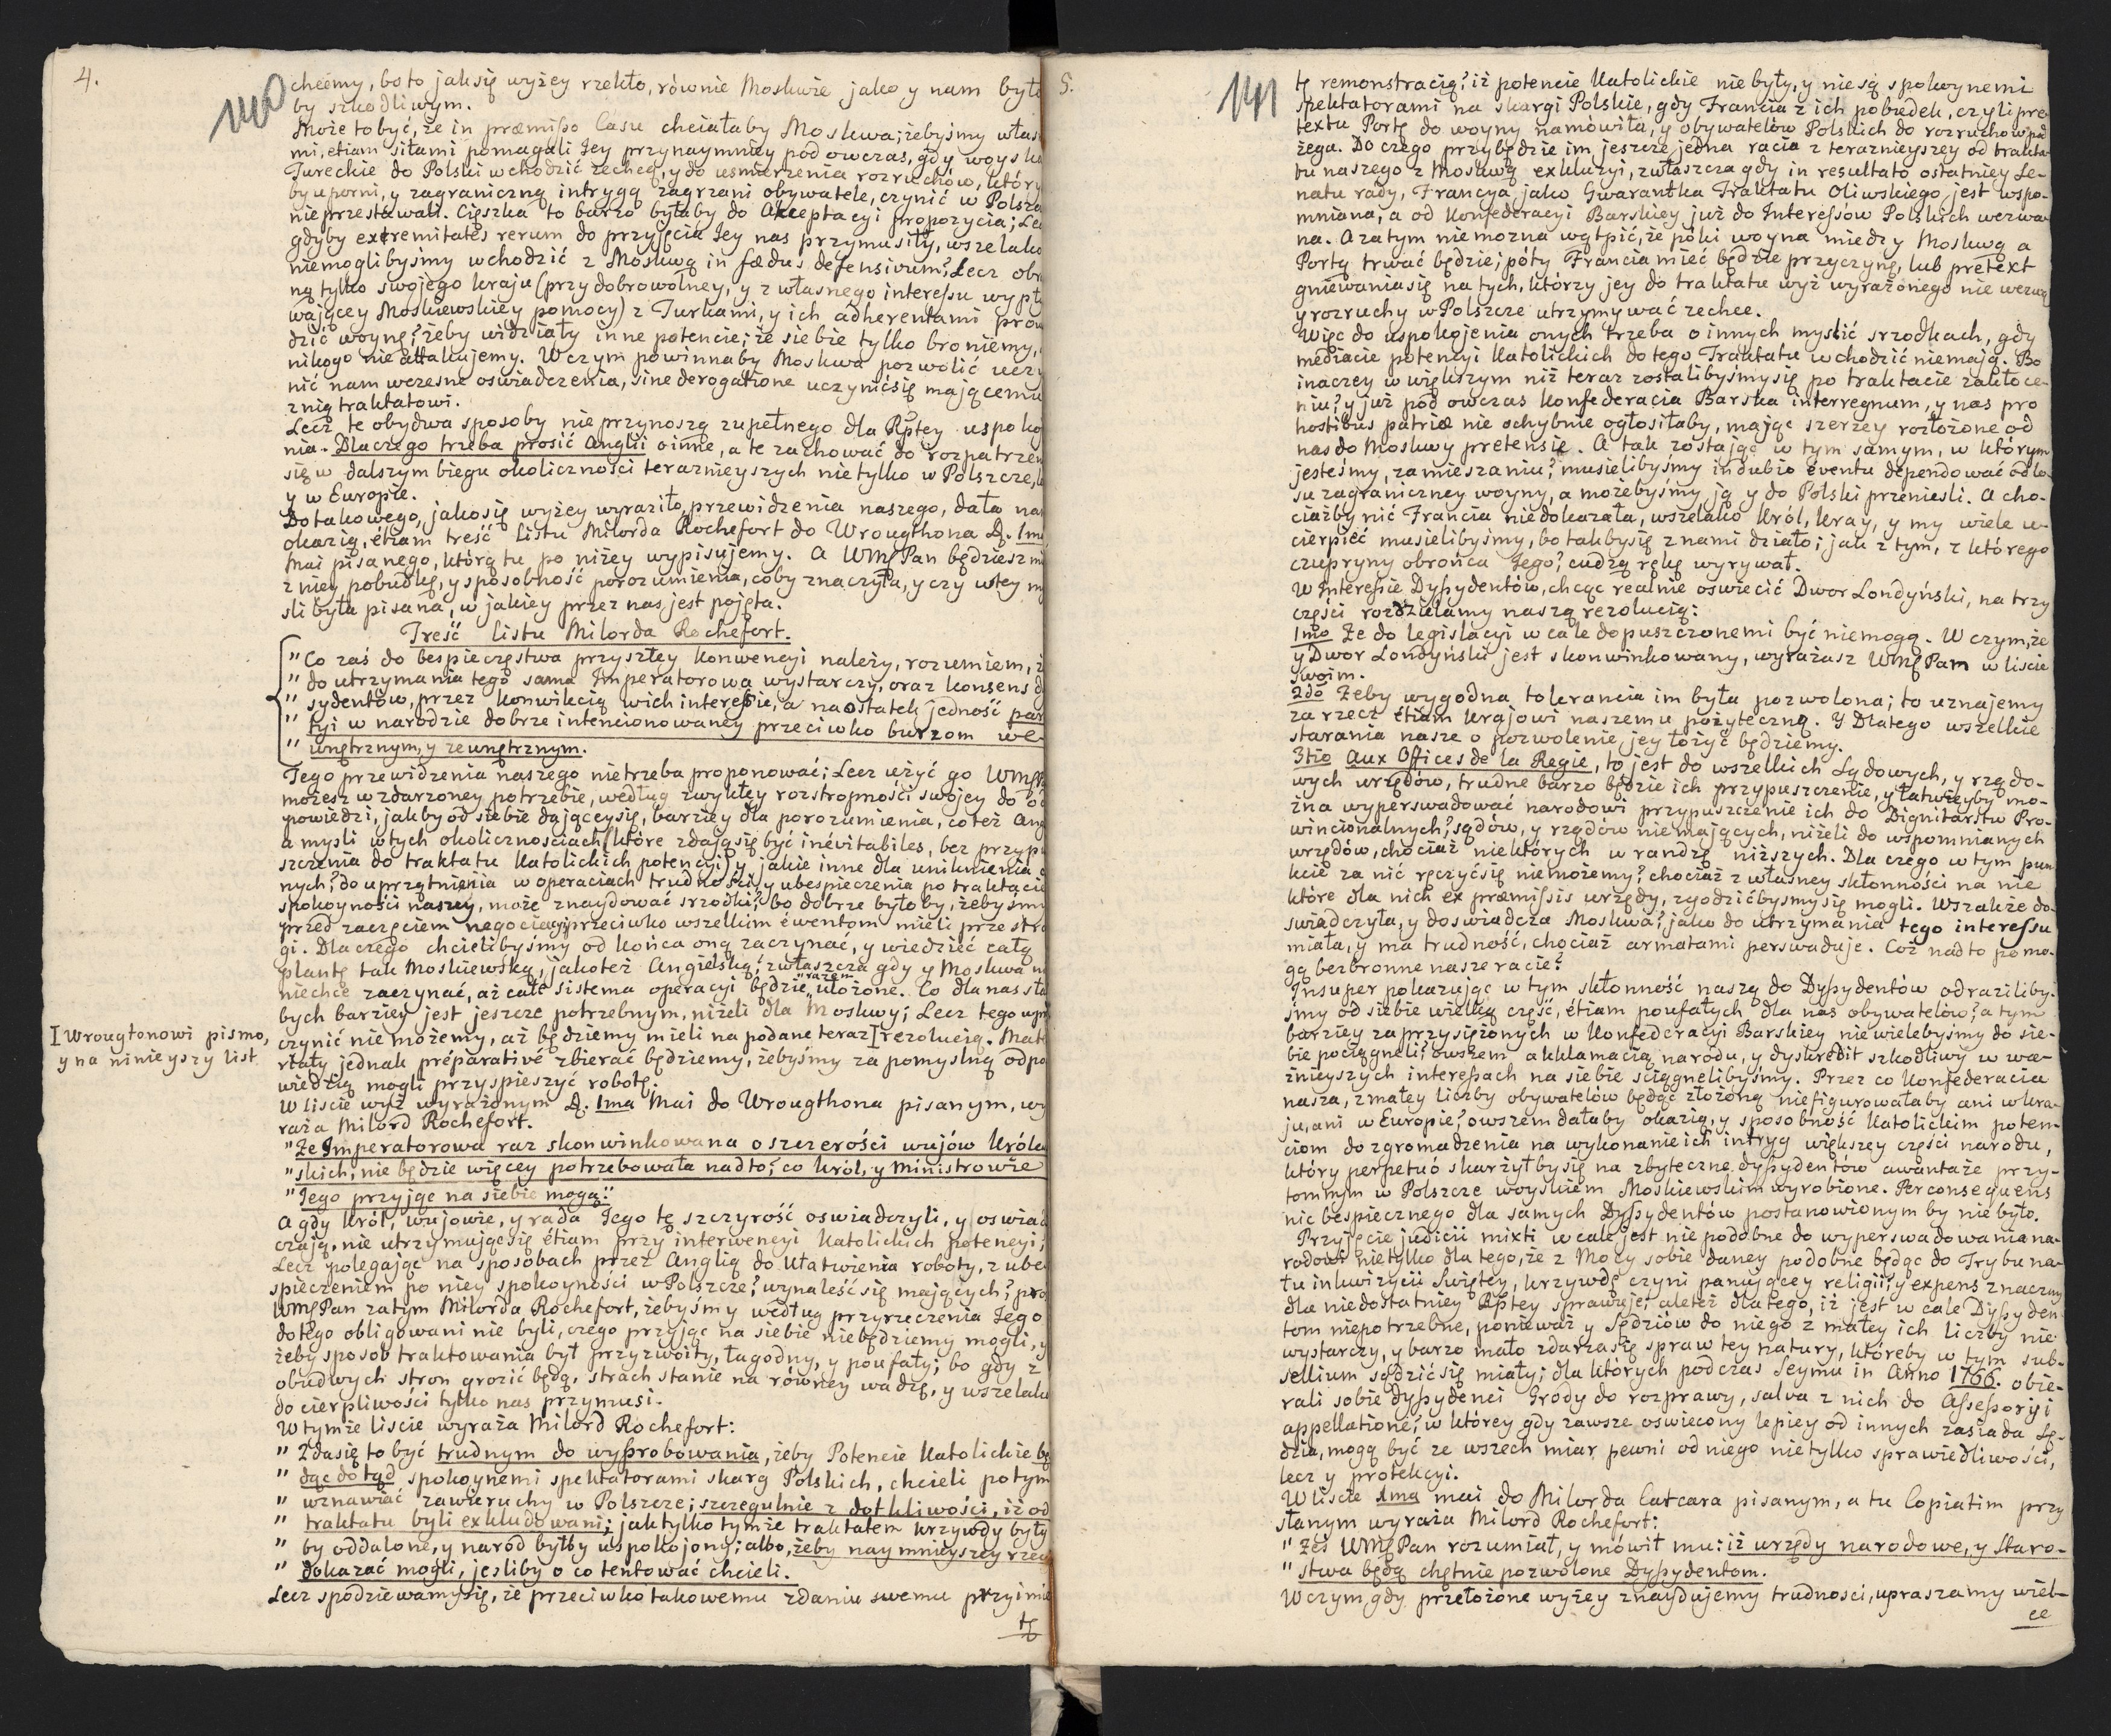 4.
140
chcemy, bo to jak się wyżey rzekło, równie Moskwie jako y nam było
by szkodliwym.
Może to być, że in præmisso Casu chciałaby Moskwa; żebyśmy włas
mi, etiam siłami pomagali Jey przynaymniey pod owczas, gdy woyska
Tureckie do Polski wchodzić zechcą, y do usmierzenia rozruchów, który
by uporni, y zagraniczną intrygą zagrzani obywatele, czynić w Polszcz
nieprzestawali. Ciężka to barzo byłaby do Akceptacyi propozycia; Lec
gdyby extremitates rerum do przyjęcia Jey nas przymusiły, wszelako
niemoglibyśmy wchodzić z Moskwą in fœdus defensivum? Lecz obro
ną tylko swojego kraju (przy dobrowolney, y z własnego interessu wypły
wającey Moskiewskiey pomocy) z Turkami, y ich adherentami prow
dzić woynę? żeby widziały inne potencie; że siebie tylko broniemy,
nikogo nie attakujemy. W czym powinnaby Moskwa pozwolić uczy
nić nam wczesne oswiadczenia, sine derogatione uczynić się mającemu
z nią traktatowi.
Lecz te obydwa sposoby nie przynoszą zupełnego dla Rptey uspoko
nia. Dlaczego trzeba prosić Anglii o inne, a te zachować do rozpatrzen
się w dalszym biegu okoliczności terazniejszych nie tylko w Polszcze, l
y w Europie.
Do takowego, jako się wyżey wyraziło, przewidzenia naszego, dała na
okazią, etiam treść Listu Milorda Rochefort do Wroughtona D. 1ma
Mai pisanego, którą tu po niżey wypisujemy. A WMPan będziesz mi
z niey pobudkę, y sposobność porozumienia, coby znaczyła, y czy w tey my
sli była pisana, w jakiey przez nas jest pojęta.
Treść listu Milorda Rochefort.
"Co zaś do bespieczęstwa przyszłey Konwencyi należy, rozumiem, ż
" do utrzymania tego sama Imperatorowa wystarczy, oraz konsens dy
" sydentów, przez konwikcią w ich interesie, a na ostatek jedność par
" tyi w narodzie dobrze intencionowaney przeciwko burzom we-
" wnętrznym, y zewnętrznym.
Tego przewidzenia naszego nietrzeba proponować; Lecz użyć go WMP
możesz w zdarzoney potrzebie, według zwykłey rozstropności swojey do od
powiedzi, jakby od siebie dającey się, barziey dla porozumienia, co też Ang
a mysli w tych okolicznościach (które zdają się być inevitabiles, bez przypu
szczenia do traktatu Katolickich potencyi) y jakie inne dla uniknienia o
nych? do uprzątnienia w operaciach trudności, y ubespieczenia po traktacie
spokoyności naszey, może znaydować srzodki? bo dobrze byłoby, żebyśmy
przed zaczęciem negociacyi przeciwko wszelkim ewentom mieli przestro
gi. Dlaczego chcielibyśmy od końca oną zaczynać, y wiedzieć całą
plantę tak Moskiewską, jakoteż Angielską; zwłaszcza gdy y Moskwa n
niechce zaczynać, aż całe sistema operacyi będzie "razem" ułożone. Co dla nas sła
bych barziey jest jeszcze potrzebnym, niżeli dla Moskwy; Lecz tego uprz
czynić niemożemy, aż będziemy mieli na podane teraz I rezolucią. Mate
I Wrougtonowi pismo,
y na ninieyszy list
ryały jednak preparative zbierać będziemy, żebyśmy za pomyslną odpo
wiedzią mogli przyspieszyć robotę.
W liscie wyż wyrażonym D. 1ma Mai do Wrougthona pisanym, wy
raża Milord Rochefort.
"Że Imperatorowa raz skonwinkowana o szczerości wujów Królew
"skich, nie będzie więcey potrzebowała nadto, co Król, y Ministrowie
"Jego przyjąc na siebie mogą."
A gdy Król, wujowie, y rada Jego tę szczyrość oswiadczyli, y oswiad
czają, nie utrzymując się etiam przy interwencyi Katolickich potencyi;
Lecz polegając na sposobach przez Anglią do ułatwienia roboty, z ubes
pieczeniem po niey spokoyności w Polszcze? wynaleść się mających? pro
WMPan zatym Milorda Rochefort, żebyśmy według przyrzeczenia Jego
do tego obligowani nie byli, czego przyjąc na siebie niebędziemy mogli, y
żeby sposob traktowania był przyzwoity, łagodny, y poufały; bo gdy z
obudwych stron grozić będą, strach stanie na równey wadze, y wszelako
do cierpliwości tylko nas przymusi.
W tymże liscie wyraża Milord Rochefort:
" Zda się to być trudnym do wyprobowania, żeby Potencie Katolickie bę
" dąc do tąd spokoynemi spektatorami skarg Polskich, chcieli potym
" wznawiać zawieruchy w Polszcze; szczegulnie z dotkliwości, iż od
" traktatu byli exkludowani; jak tylko tymże traktatem krzywdy były
" by oddalone, y naród byłby uspokojony; albo, żeby naymnieyszey rzeczy
" dokazać mogli, jesliby o co tentować chcieli.
Lecz spodziewamy się, że przeciwko takowemu zdaniu swemu przyimie
tę
5.
141
tę remonstracią? iż potencie Katolickie nie były, y nie są spokoynemi
spektatorami na skargi Polskie, gdy Francia z ich pobudek, czyli pre-
textu Portę do woyny namówiła, y obywatelów Polskich do rozruchow pod
żega. Do czego przybędzie im jeszcze jedna racia z teraznieyszey od trakta-
tu naszego z Moskwą exkluzyi, zwłaszcza gdy in resultato ostatniey Se-
natu rady, Francya jako Gwarantka Traktatu Oliwskiego jest wspo-
mniana, a od Konfederacyi Barskiey już do Interessow Polskich wezwa-
na. A zatym niemożna wątpić, że póki woyna miedzy Moskwą a
Portą trwać będzie; póty Francia mieć będzie przyczynę, lub pretext
gniewania się na tych, którzy jey do traktatu wyż wyrażonego nie wezwą
y rozruchy w Polszcze utrzymywać zechce.
Więc do uspokojenia onych trzeba o innych myslić srzodkach, gdy
mediacie potencyi Katolickich do tego Traktatu wchodzić niemają. Bo
inaczey w większym niż teraz zostalibyśmy się po traktacie zakłóce-
niu? y już pod owczas Konfederacia Barska interregnum, y nas pro
hostibus patriæ nie ochybnie ogłosiłaby, mając szerzey rozłożone od
nas do Moskwy pretensie. A tak zostając w tym samym, w którym
jesteśmy, zamieszaniu? musielibyśmy in dubio eventu dependować od lo-
su zagraniczney woyny, a możebyśmy ją y do Polski przeniesli. A cho-
ciażby nić Francia niedokazała, wszelako Król, Kray, y my wiele u-
cierpieć musielibyśmy, bo takby się z nami działo; jak z tym, z którego
czupryny obrońca Jego? cudzą rękę wyrywał.
W Interesie Dyssydentów, chcąc realnie oswiecić Dwor Londyński, na trzy
części rozdzielamy naszą rezolucią:
1mo Że do legislacyi w cale dopuszczonemi być niemogą. W czym, że
y Dwor Londyński jest skonwinkowany, wyrażasz WMPan w liscie
swoim.
2do Żeby wygodna tolerancia im była pozwolona; to uznajemy
za rzecz etiam krajowi naszemu pożyteczną. Y Dlatego wszelkie
starania nasze o pozwolenie jey łożyć będziemy.
3tio Aux Offices de la Regie, to jest do wszelkich Sądowych, y rządo-
wych urzędów, trudne barzo będzie ich przypuszczenie, y łatwieyby mo-
żna wyperswadować narodowi przypuszczenie ich do Dignitarstw Pro-
wincionalnych? sądów, y rządów niemających, niżeli do wspomnianych
urzędów, chociaż niektórych w randze niższych. Dla czego w tym pun
kcie za nić ręczyć się niemożemy? chociaż z własney skłonności na nie
które dla nich ex præmissis urzędy, zgodzićbyśmy się mogli. Wszakże do-
swiadczyła, y doswiadcza Moskwa? jako do utrzymania tego interessu
miała, y ma trudność, chociaż armatami perswaduje. Coż nadto pomo-
gą bezbronne nasze racie?
Insuper pokazując w tym skłonność naszą do Dyssydentów odraziliby-
śmy od siebie wielką część, etiam poufałych dla nas obywatelów? a tym
barziey zaprzysiężonych w Konfederacyi Barskiey niewielebyśmy do sie-
bie pociągneli? owszem akklamacią narodu, y dyskredit szkodliwy w wa-
żnieyszych interessach na siebie sciągnelibyśmy. Przez co Konfederacia
nasza, z małey liczby obywatelów będąc złożoną niefigurowałaby ani w kra-
ju, ani w Europie? owszem dałaby okazią, y sposobność Katolickim poten-
ciom do zgromadzenia na wykonanie ich intryg większey części narodu,
który perpetuó skarżyłby się na zbyteczne dyssydentów awantaże przy-
tomnym w Polszcze woyskiem Moskiewskim wyrobione. Per consequens
nic bespiecznego dla samych Dyssydentów postanowionym by nie było.
Przyjęcie judicii mixti w cale jest nie podobne do wyperswadowania na-
rodowi nietylko dla tego, że z Mocy sobie daney podobne będąc do Trybuna-
łu inkwizycii Swiętey, krzywdę czyni panującey religii? y expens znaczny
dla niedostatniey Rptey sprawuje; aleteż dlatego, iż jest w cale Dyssyden-
tom niepotrzebne, ponieważ y Sędziów do niego z małey ich liczby nie
wystarczy, y barzo mało zdarza się spraw tey natury, któreby w tym sub-
sellium sądzić się miały; dla których podczas Seymu in Anno 1766. obie-
rali sobie dyssydenci Grody do rozprawy, salva z nich do Assessoryi
appellatione? w którey gdy zawsze oswiecony lepiey od innych zasiada Sę-
dzia, mogą być ze wszech miar pewni od niego nietylko sprawiedliwości,
lecz y protekcyi.
W liscie 1ma mai do Milorda Catcara pisanym, a tu Copiatim przy
słanym wyraża Milord Rochefort:
" Żeś WMPan rozumiał, y mówił mu: iż urzędy narodowe, y Staro-
" stwa będą chętnie pozwolone Dyssydentom.
W czym, gdy przełożone wyżey znaydujemy trudności, upraszamy wiel-
ce